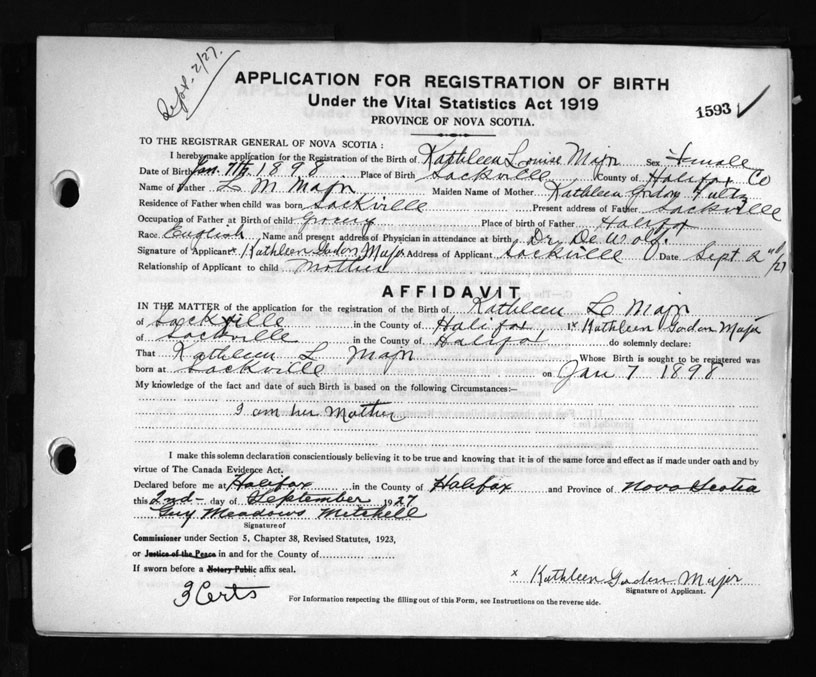 Sept. 2/27.
APPLICATION FOR REGISTRATION OF BIRTH
Under the Vital Statistics Act 1919
PROVINCE OF NOVA SCOTIA.
1593 ✓
TO THE REGISTRAR GENERAL OF NOVA SCOTIA:
I hereby make application for the Registration of the Birth of Kathleen Louise Major Sex Female
Date of Birth Jan. 7th 1898 Place of Birth Sackville County of Halifax Co
Name of Father L M Major Maiden Name of Mother Kathleen Gordon Fultz
Residence of Father when child was born Sackville Present address of Father Sackville
Occupation of Father at Birth of child Grocery Place of birth of Father Halifax
Race English Name and present address of Physician in attendance at birth Dr De Wolf.
Signature of Applicant x Kathleen Gordon Major Address of Applicant Sackville Date Sept 2nd/27
Relationship of Applicant to child Mother
AFFIDAVIT
IN THE MATTER of the application for the registration of the Birth of Kathleen L Major
of Sackville in the County of Halifax I x Kathleen Gordon Major
of Sackville in the County of Halifax do solemnly declare:
That Kathleen L Major Whose Birth is sought to be registered was
born at Sackville on Jan 7 1898
My knowledge of the fact and date of such Birth is based on the following Circumstances:—
I am her Mother
I make this solemn declaration conscientiously believing it to be true and knowing that it is of the same force and effect as if made under oath and by
virtue of The Canada Evidence Act.
Declared before me at Halifax in the County of Halifax and Province of Nova Scotia
this 2nd- day of September 1927
Guy Meadows Mitchell
Signature of
Commissioner under Section 5, Chapter 38, Revised Statutes, 1923,
or Justice of the Peace in and for the County of
If sworn before a Notary Public affix seal.
x Kathleen Gordon Major
Signature of Applicant.
3 Certs
For Information respecting the filling out of this Form, see Instructions on the reverse side.